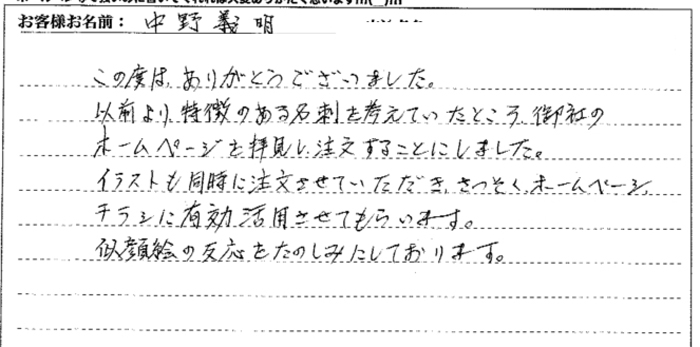 お客様お名前： 中野義明
この度は、ありがとうございました。
以前より、特徴のある名刺を考えていたところ、御社の
ホームページを拝見し、注文することにしました。
イラストも同時に注文させていただき、さっそく、ホームページ、
チラシに有効活用させてもらいます。
似顔絵の反応をたのしみにしております。